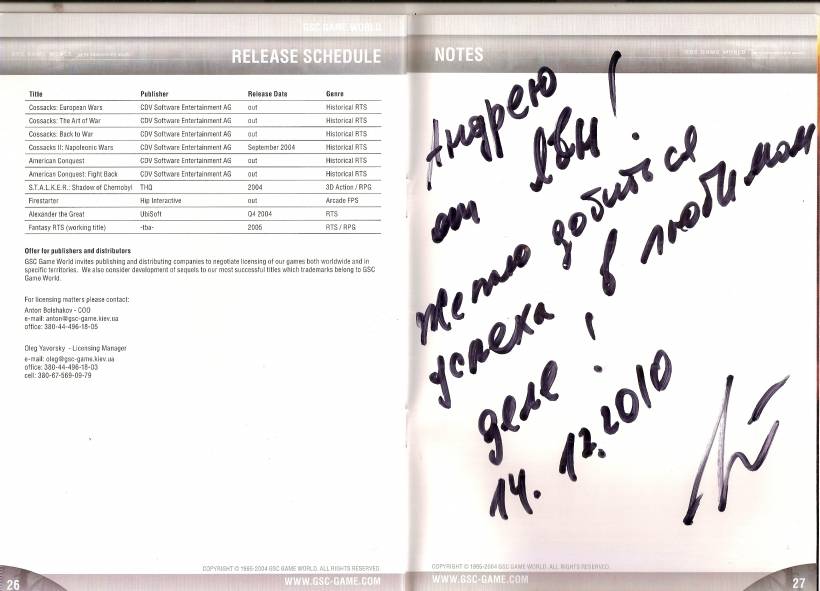 GSC GAME WORLD
RELEASE SCHEDULE
Title Publisher Release Date Genre
Cossacks: European Wars CDV Software Entertainment AG out Historical RTS
Cossacks: The Art of War CDV Software Entertainment AG out Historical RTS
Cossacks: Back to War CDV Software Entertainment AG out Historical RTS
Cossacks II: Napoleonic Wars CDV Software Entertainment AG September 2004 Historical RTS
American Conquest CDV Software Entertainment AG out Historical RTS
American Conquest: Fight Back CDV Software Entertainment AG out Historical RTS
S.T.A.L.K.E.R.: Shadow of Chernobyl THQ 2004 3D Action / RPG
Firestarter Hip Interactive out Arcade FPS
Alexander the Great UbiSoft Q4 2004 RTS
Fantasy RTS (working title) -tba- 2005 RTS / RPG
Offer for publishers and distributors
GSC Game World invites publishing and distributing companies to negotiate licensing of our games both worldwide and in
specific territories. We also consider development of sequels to our most successful titles which trademarks belong to GSC
Game World.
For licensing matters please contact:
Anton Bolshakov - COO
e-mail: anton@gsc-game.kiev.ua
office: 380-44-496-18-05
Oleg Yavorsky - Licensing Manager
e-mail: oleg@gsc-game.kiev.ua
office: 380-44-496-18-03
cell: 380-67-569-09-79
COPYRIGHT © 1995-2004 GSC GAME WORLD. ALL RIGHTS RESERVED.
26 WWW.GSC-GAME.COM
NOTES
GSC GAME WORLD
Андрею
от ЛВН!
Желаю добиться
успеха в любимом
деле!
14.12.2010
COPYRIGHT © 1995-2004 GSC GAME WORLD. ALL RIGHTS RESERVED.
WWW.GSC-GAME.COM 27